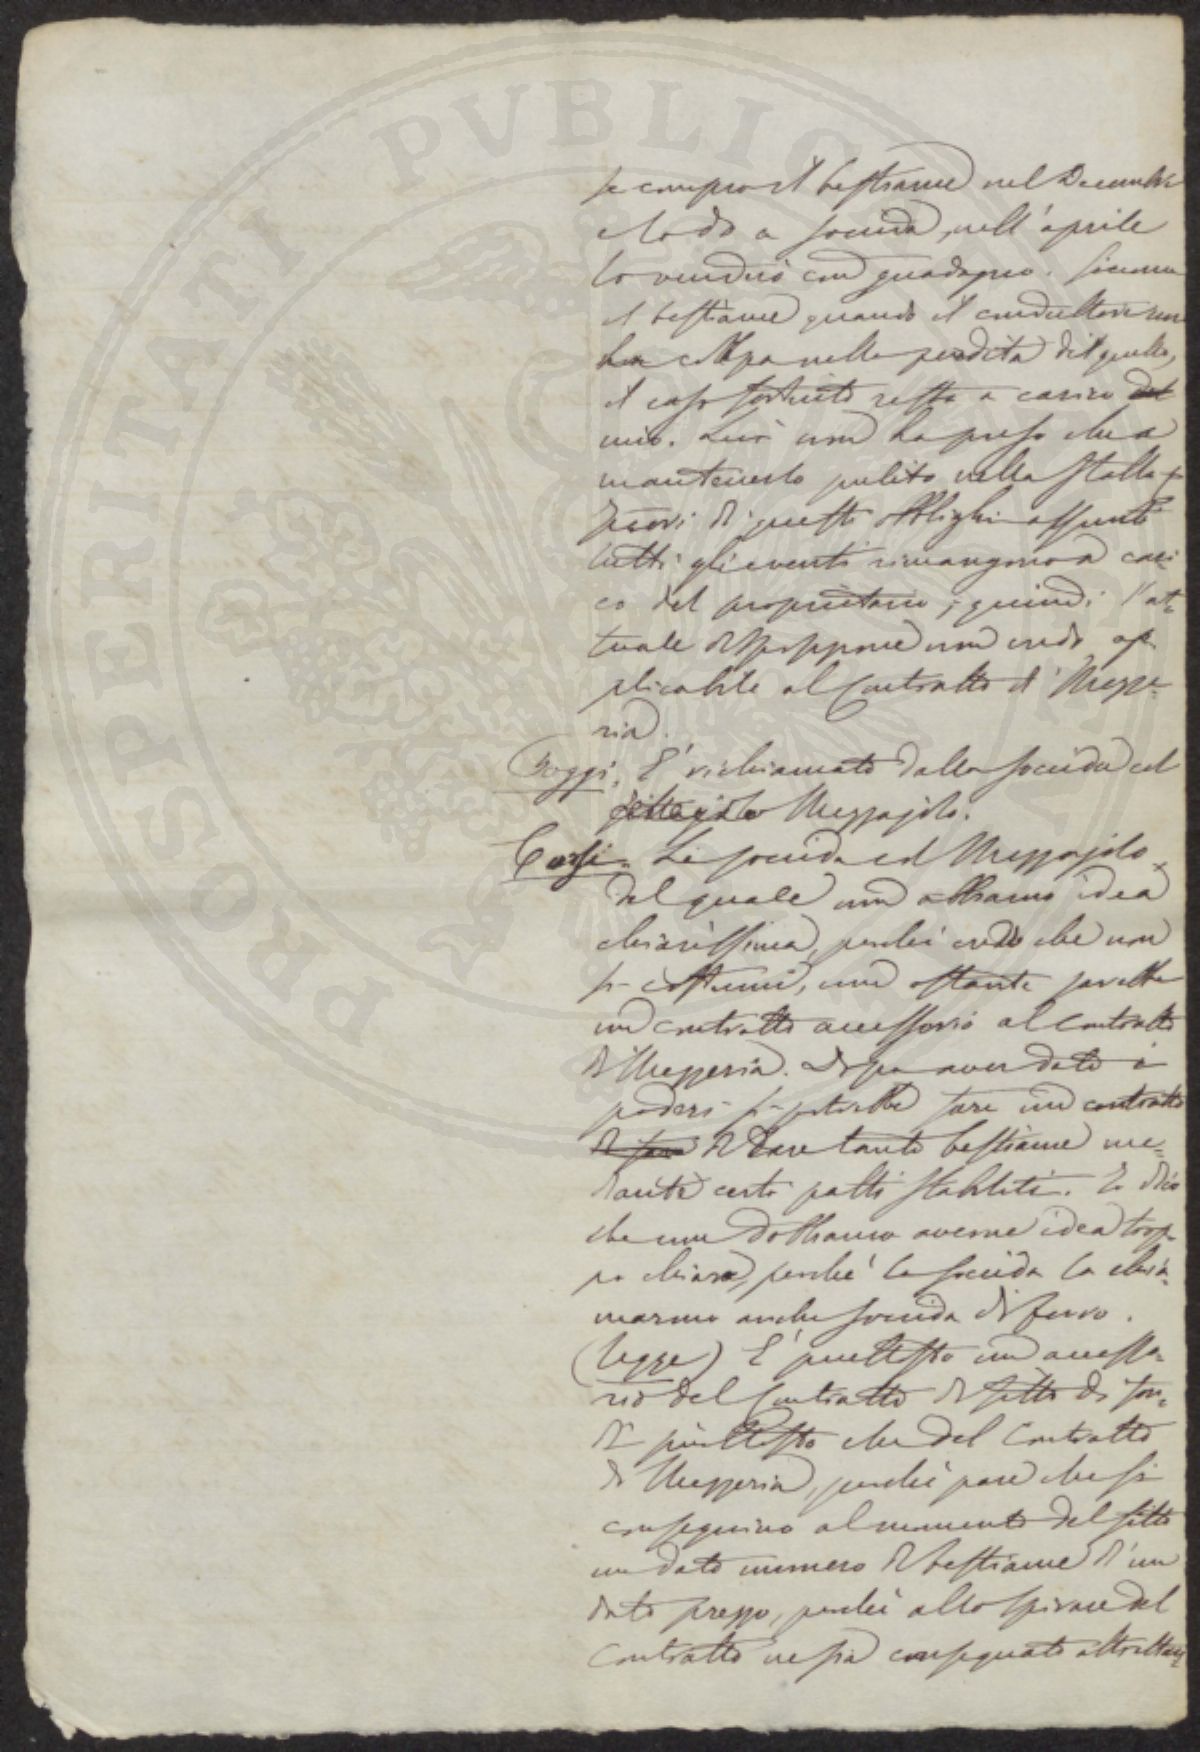 PROSPERITATI PVBLIC
se compro il bestiame nel Decembre
e lo do a soccida, nell'aprile
lo venderò con guadagno. Siccome
il bestiame quando il conduttore non
ha colpa nella perdita di quello,
il caso fortuito resta a carico del
mio. Lui non ha preso che a
mantenerlo pulito nella stalla
fuori di questi obblighi assunti
tutti gli eventi rimangono a cari-
co del proprietario, quindi l'at-
tuale disposizione non credo ap-
plicabile al Contratto di Mezze-
ria.
Poggi. È richiamato dalla soccida col
Mezzajolo.
Corsi. La soccida col Mezzajolo
del quale non abbiamo idea
chiarissima, perchè credo che non
si costumi, non ostante sarebbe
un contratto accessorio al contratto
di Mezzeria. Dopo aver dato i
poderi si potrebbe fare un contratto
di fare di dare tanto bestiame me-
diante certi patti stabiliti. Io dico
che non dobbiamo averne idea trop-
po chiara, perchè la soccida la chia-
marono anche soccida di ferro.
(legge) È piuttosto un accesso-
rio del Contratto di fitto di fon-
di piuttosto che del Contratto
di Mezzeria, perchè pare che si
conseguino al momento del fitto
un dato numero di bestiame d'un
dato prezzo, perchè allo spirare del
contratto ne sia conseguato altrettan-